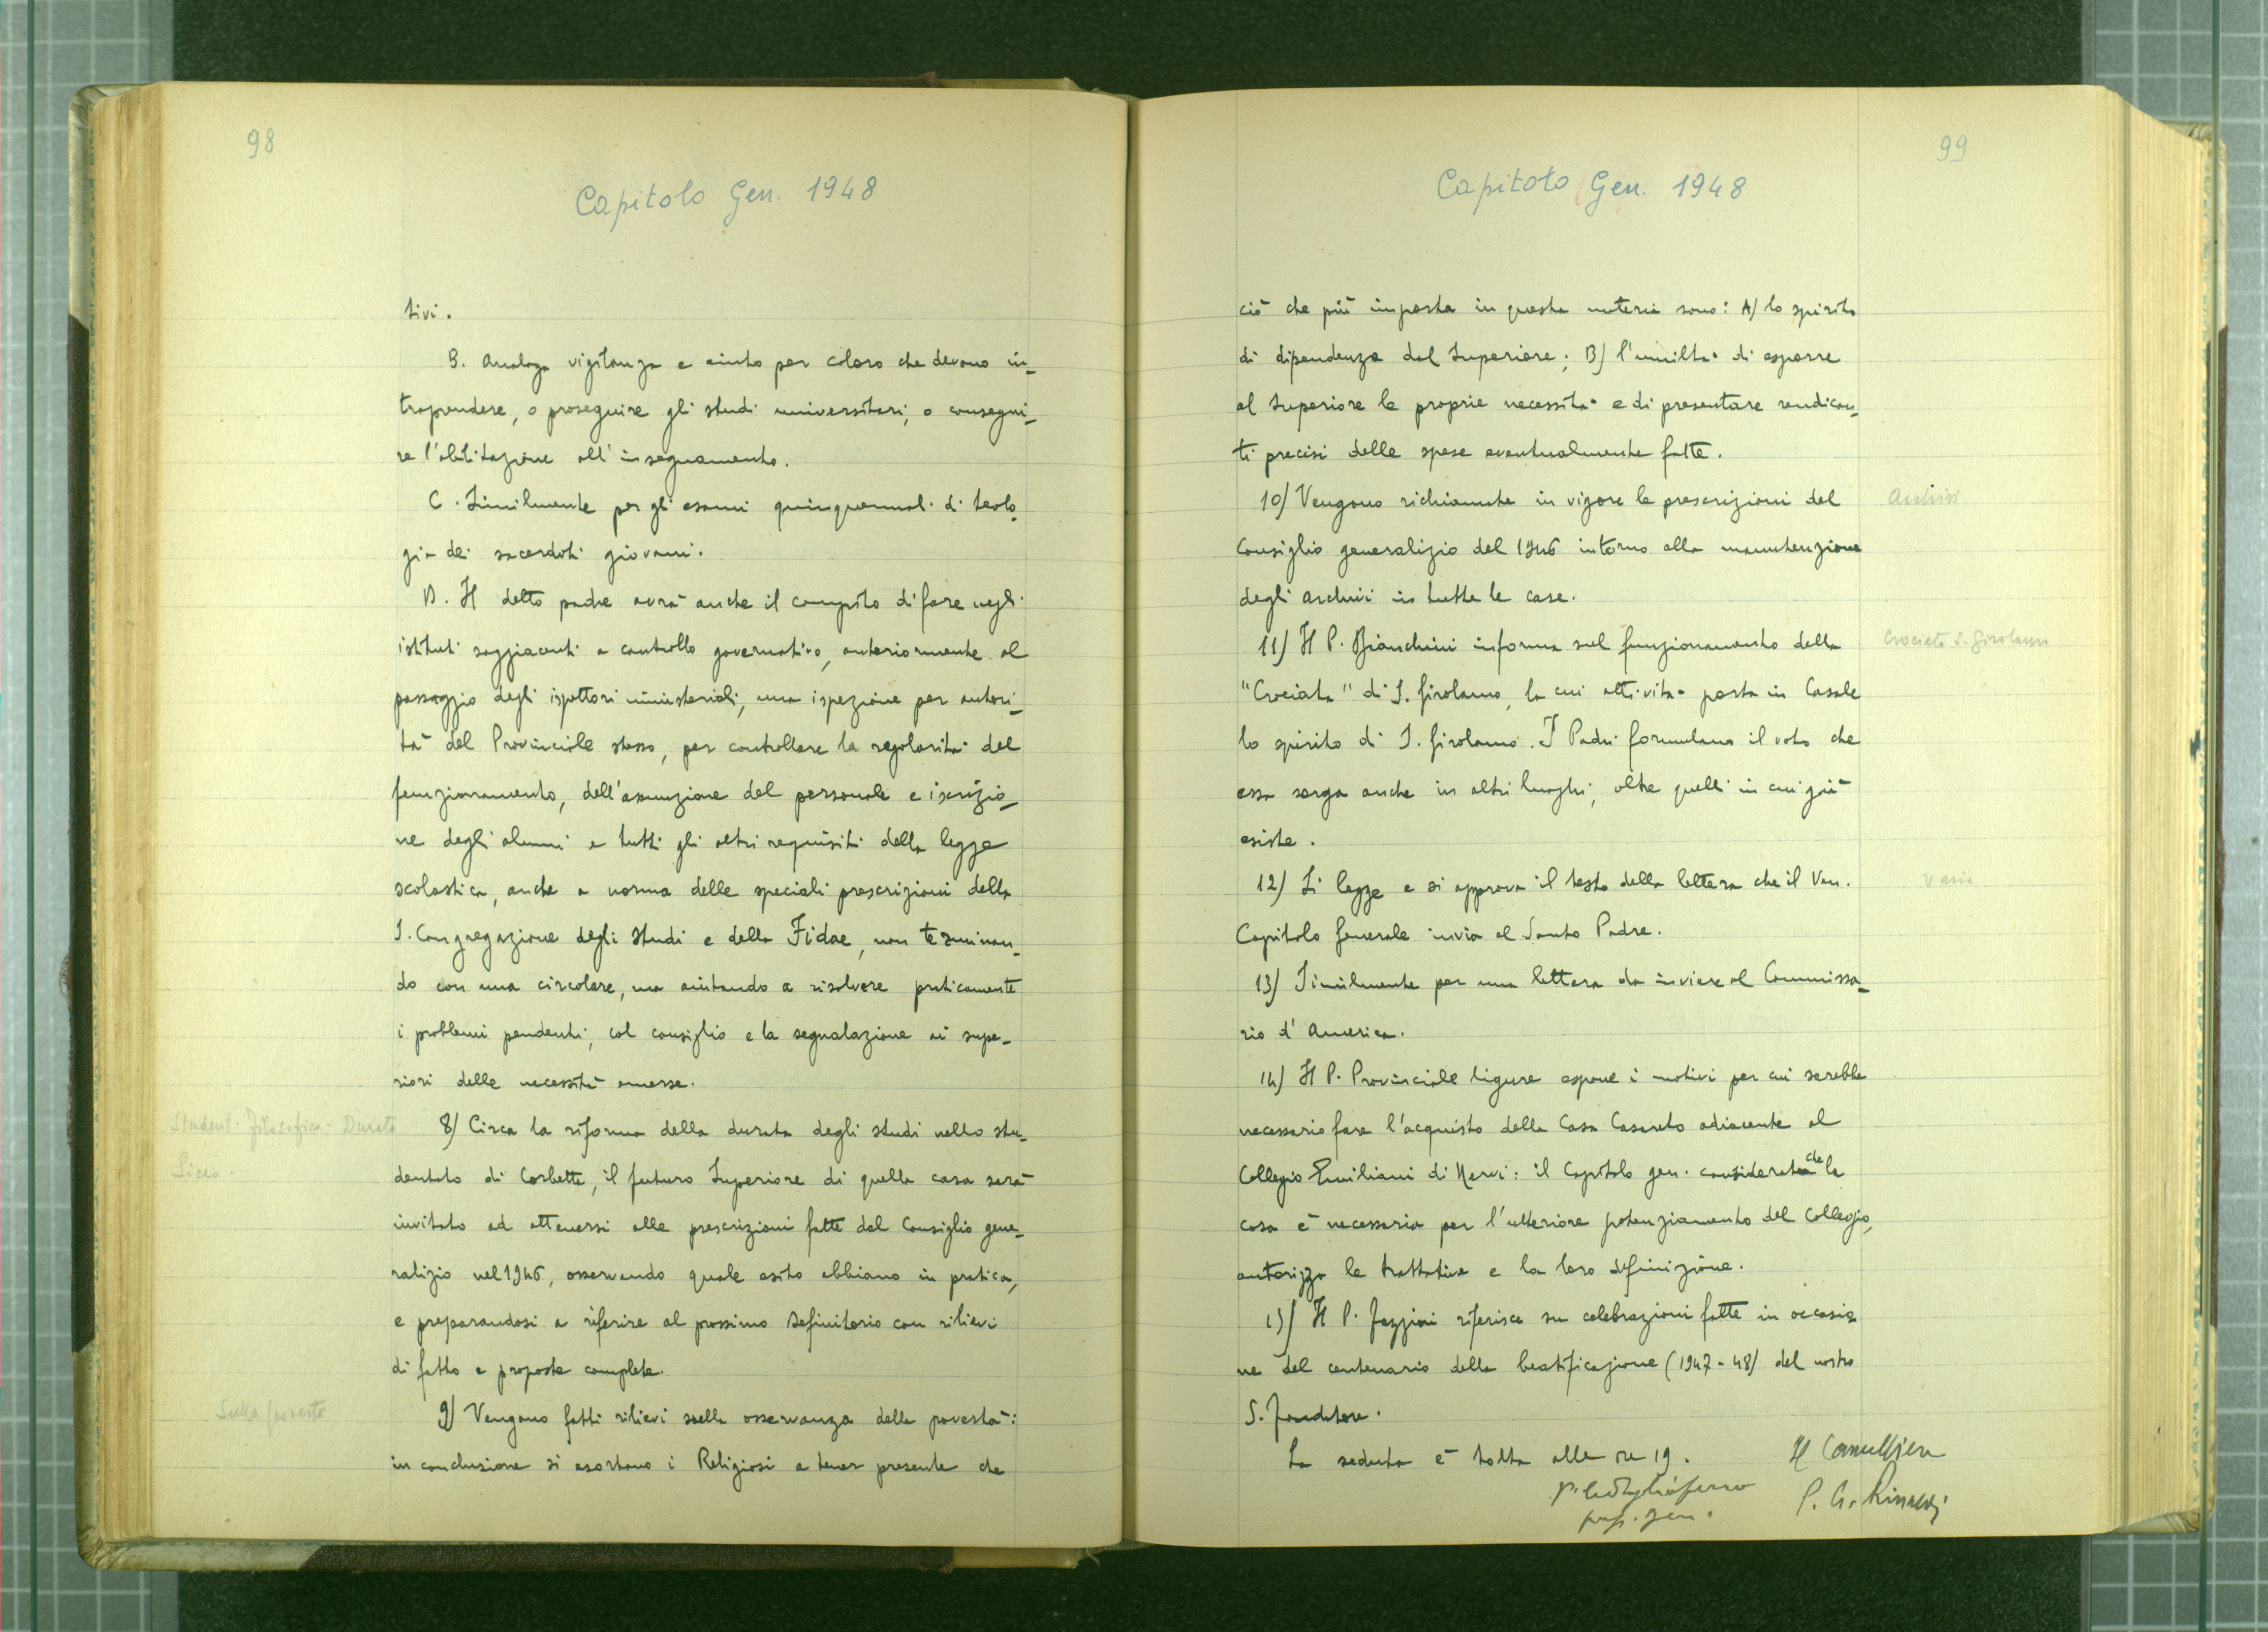 98
Capitolo Gen. 1948
tivi.
B. Analoga vigilanza e aiuto per coloro che devono in-
traprendere, o proseguire gli studi universitari, o consegui-
re l'abilitazione all'insegnamento.
C. Similmente per gli esami quinquennali di teolo-
gia dei sacerdoti giovani.
D. Il detto padre avrà anche il compito di fare negli
istituti soggiacenti a controllo governativo, anteriormente al
passaggio degli ispettori ministeriali, una ispezione per autori-
tà del Provinciale stesso, per controllare la regolarità del
funzionamento, dell'assunzione del personale e iscrizio-
ne degli alunni e tutti gli altri requisiti della legge
scolastica, anche a norma delle speciali prescrizioni della
S. Congregazione degli Studi e della Fidae, non terminan-
do con una circolare, ma aiutando a risolvere praticamente
i problemi pendenti, col consiglio e la segnalazione ai supe-
riori delle necessità emerse.
Student. Filosofico - Durata
Liceo.
8) Circa la riforma della durata degli studi nello stu-
dentato di Corbetta, il futuro Superiore di quella casa sarà
invitato ad attenersi alle prescrizioni fatte dal Consiglio gene-
ralizio nel 1946, osservando quale esito abbiano in pratica,
e preparandosi a riferire al prossimo Definitorio con rilievi
di fatto e proposte complete.
Sulla povertà
9) Vengono fatti rilievi sulla osservanza della povertà:
in conclusione si esortano i Religiosi a tener presente che
99
Capitolo Gen. 1948
ciò che più importa in questa materia sono: A) lo spirito
di dipendenza dal Superiore; B) l'umiltà di esporre
al Superiore le proprie necessità e di presentare rendicon-
ti precisi delle spese eventualmente fatte.
10) Vengono richiamate in vigore le prescrizioni del
Archivi
Consiglio generalizio del 1946 intorno alla manutenzione
degli archivi in tutte le case.
11) Il P. Bianchini informa sul funzionamento della
Crociata S. Girolamo
"Crociata" di S. Girolamo, la cui attività porta in Casale
lo spirito di S. Girolamo. I Padri formulano il voto che
essa sorga anche in altri luoghi, oltre quelli in cui già
esiste.
12) Si legge e si approva il testo della lettera che il Ven.
Varie
Capitolo Generale invia al Santo Padre.
13) Similmente per una lettera da inviare al Commissa-
rio d'America.
14) Il P. Provinciale ligure espone i motivi per cui sarebbe
necessario fare l'acquisto della Casa Casareto adiacente al
Collegio Emiliani di Nervi: il Capitolo gen. considerato che la
cosa è necessaria per l'ulteriore potenziamento del Collegio,
autorizza le trattative e la loro definizione.
15) Il P. Fazzini riferisce su celebrazioni fatte in occasio-
ne del centenario della beatificazione (1947-48) del nostro
S. Fondatore.
La seduta è tolta alle ore 19.
prep. gen.
P. G. Rinaldi